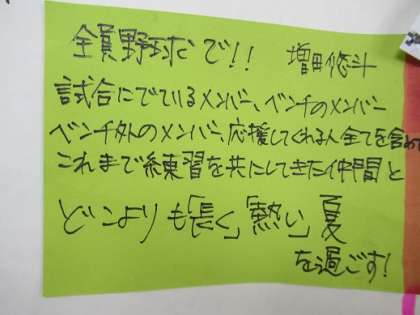 全員野球で!! 増田悠斗
試合にでているメンバー、ベンチのメンバー
ベンチ外のメンバー、応援してくれる人全てを含めて
これまで練習を共にしてきた仲間と
どこよりも「長く」「熱い」夏
を過ごす!